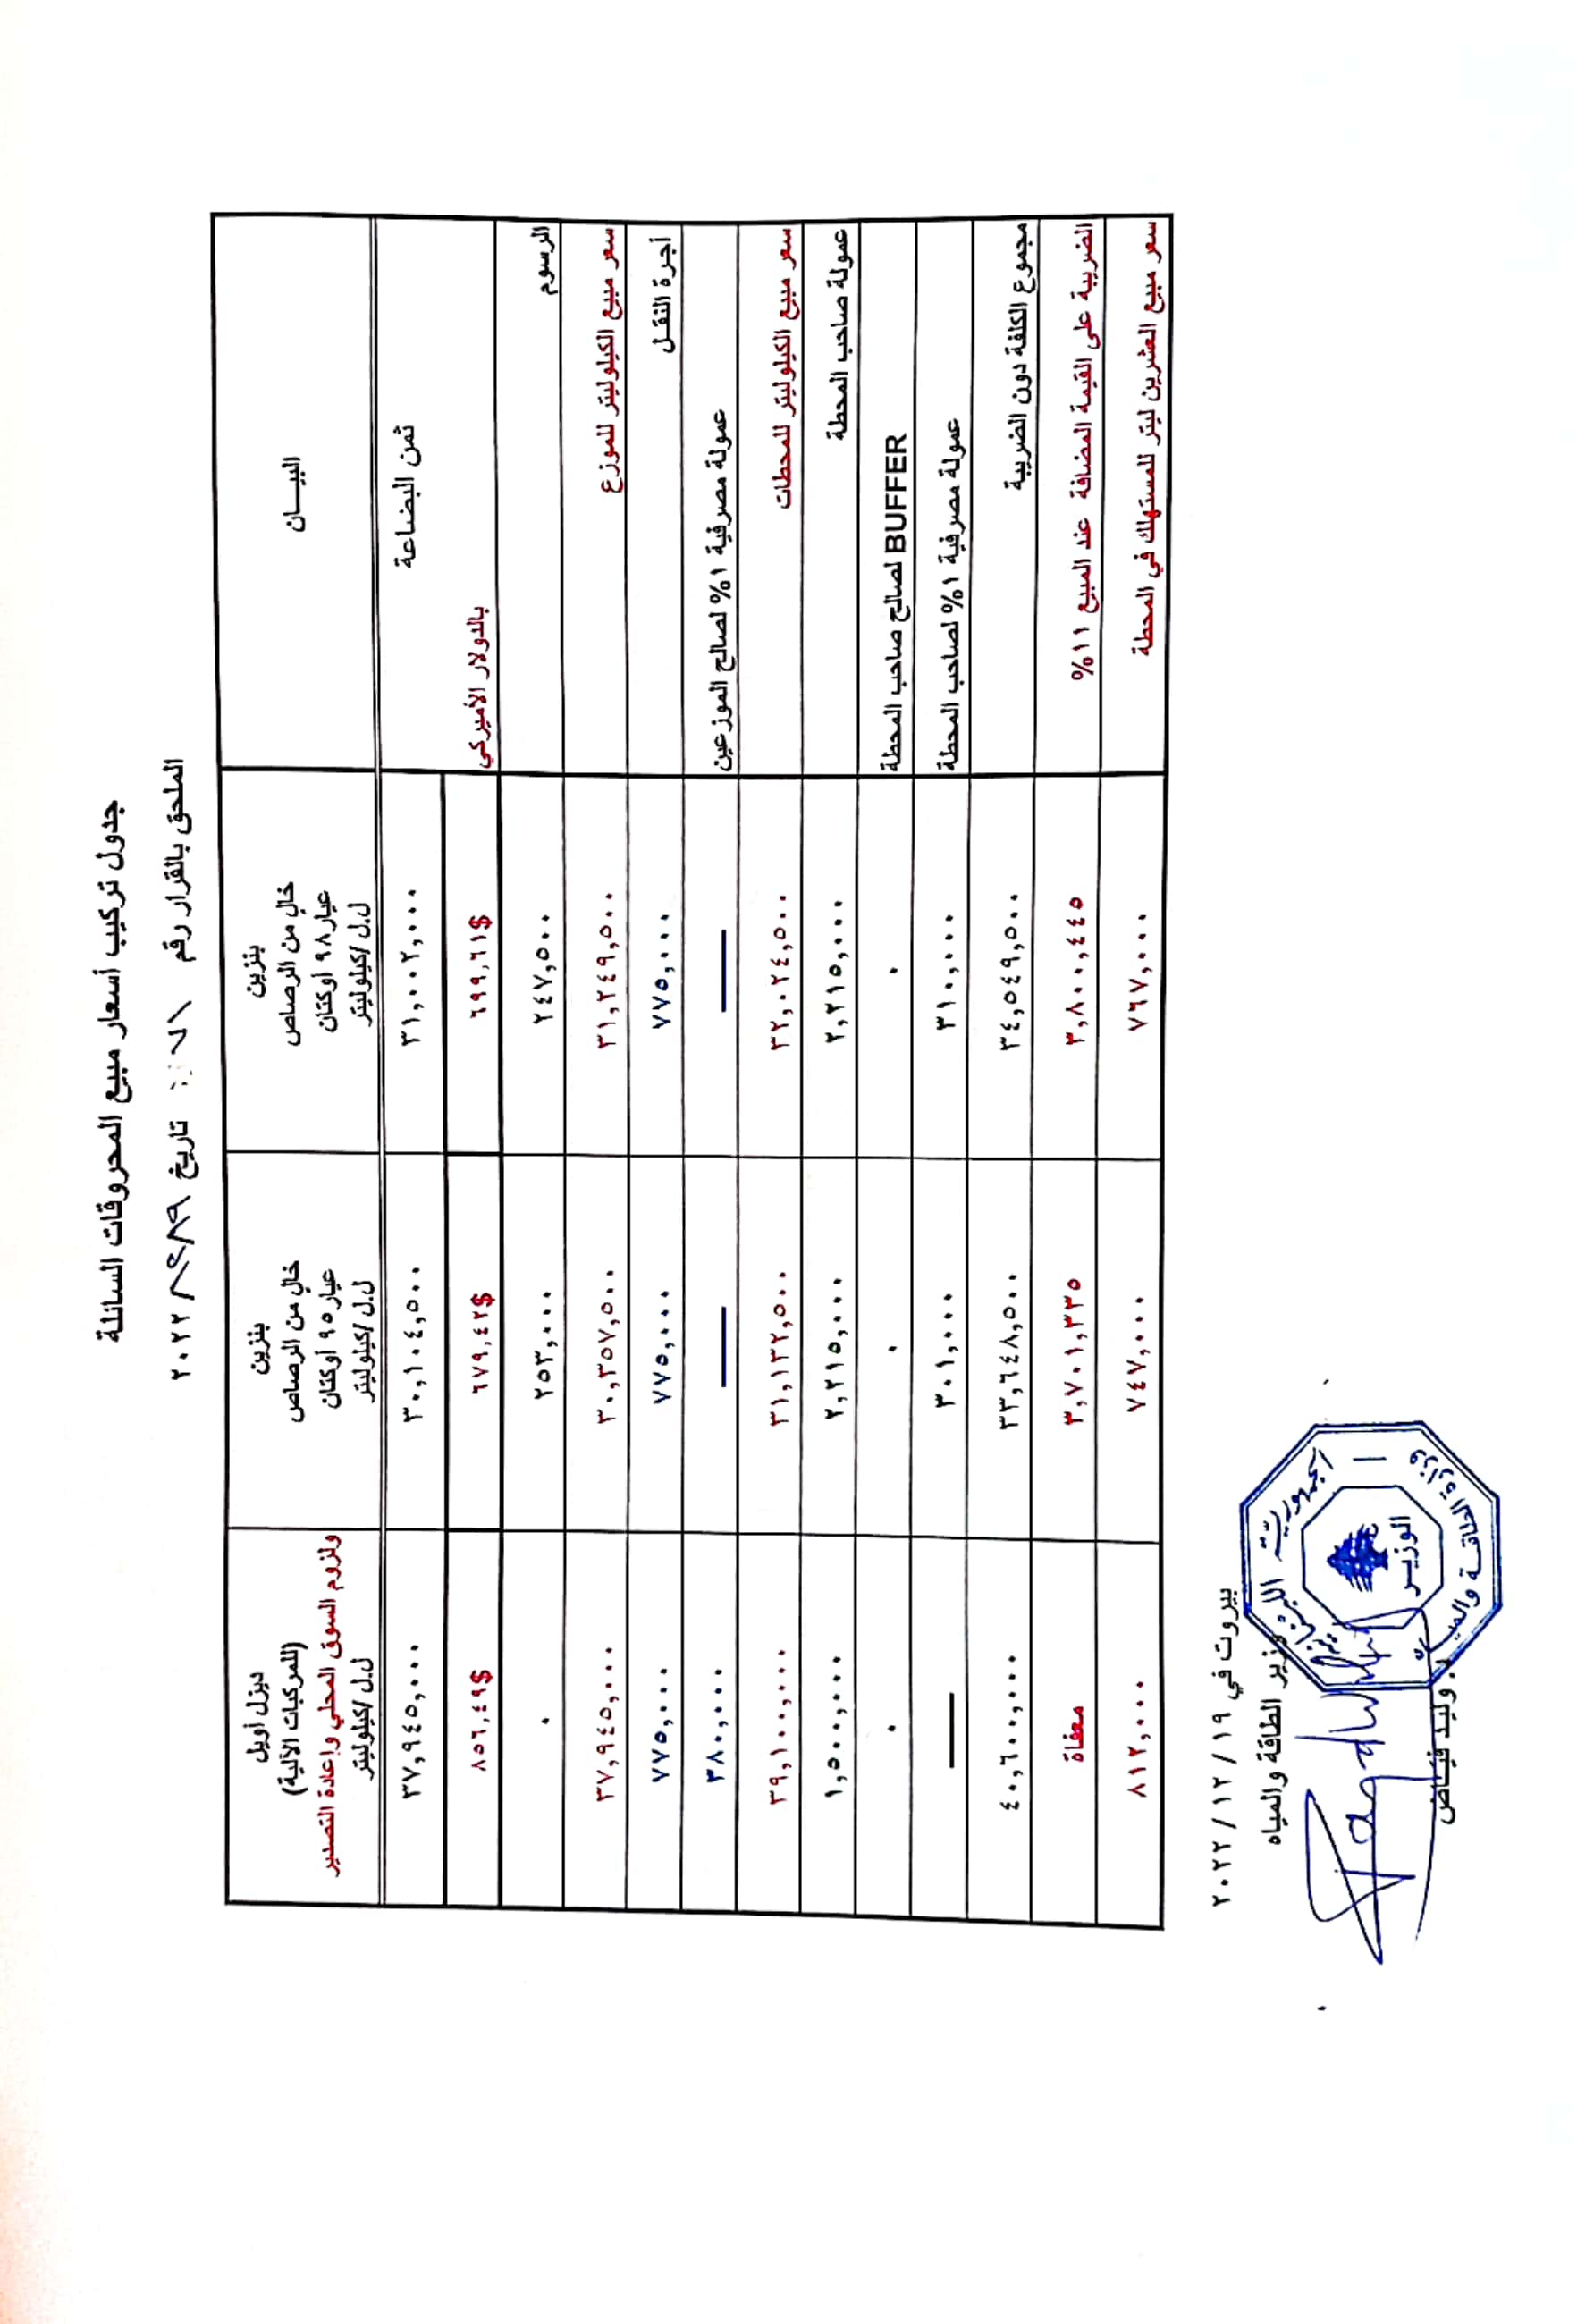 جدول تركيب أسعار مبيع المحروقات السائلة
الملحق بالقرار رقم تاريخ ٢٠٢٢
البيــان
بنزين
خالٍ من الرصاص
عيار ٩٨ أوكتان
ل.ل/كيلوليتر
بنزين
خالٍ من الرصاص
عيار ٩٥ أوكتان
ل.ل/كيلوليتر
ديزل أويل
(للمركبات الآلية)
ولزوم السوق المحلي وإعادة التصدير
ل.ل/كيلوليتر
ثمن البضاعة ٣١,٠٠٢,٠٠٠ ٣٠,١٠٤,٥٠٠ ٣٧,٩٤٥,٠٠٠
بالدولار الأميركي ٦٩٩,٦١$ ٦٧٩,٤٢$ ٨٥٦,٤٩$
الرسوم ٢٤٧,٥٠٠ ٢٥٣,٠٠٠ ٠
سعر مبيع الكيلوليتر للموزع ٣١,٢٤٩,٥٠٠ ٣٠,٣٥٧,٥٠٠ ٣٧,٩٤٥,٠٠٠
أجرة النقـل ٧٧٥,٠٠٠ ٧٧٥,٠٠٠ ٧٧٥,٠٠٠
عمولة مصرفية ١% لصالح الموزعين — — ٣٨٠,٠٠٠
سعر مبيع الكيلوليتر للمحطات ٣٢,٠٢٤,٥٠٠ ٣١,١٣٢,٥٠٠ ٣٩,١٠٠,٠٠٠
عمولة صاحب المحطة ٢,٢١٥,٠٠٠ ٢,٢١٥,٠٠٠ ١,٥٠٠,٠٠٠
BUFFER لصالح صاحب المحطة ٠ ٠ ٠
عمولة مصرفية ١% لصاحب المحطة ٣١٠,٠٠٠ ٣٠١,٠٠٠ —
مجموع الكلفة دون الضريبة ٣٤,٥٤٩,٥٠٠ ٣٣,٦٤٨,٥٠٠ ٤٠,٦٠٠,٠٠٠
الضريبة على القيمة المضافة عند المبيع ١١% ٣,٨٠٠,٤٤٥ ٣,٧٠١,٣٣٥ معفاة
سعر مبيع العشرين ليتر للمستهلك في المحطة ٧٦٧,٠٠٠ ٧٤٧,٠٠٠ ٨١٢,٠٠٠
بيروت في ١٩ / ١٢ / ٢٠٢٢
وزير الطاقة والمياه
وليد فيـاض
الجمهورية اللبنانية
الوزير
وزارة الطاقة والمياه